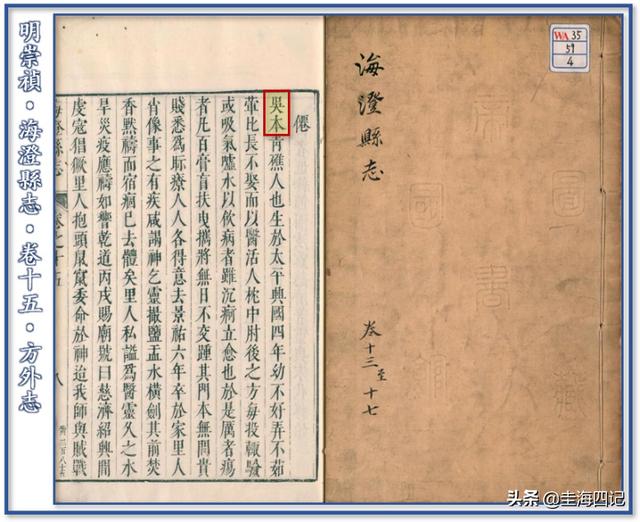 明崇禎·海澄縣志·卷十五·方外志
僊
吳本青礁人也生於太平興國四年幼不好弄不茹
葷比長不娶而以醫活人枕中肘後之方每投輒驗
或吸氣噓水以飲病者雖沉痾立愈也於是厲者瘍
者凡百膏肓扶曳攜將無日不交踵其門本無問貴
賤悉為眎療人人各得意去景祐六年卒於家里人
肖像事之有疾咸謁神乞靈撮鹽盂水橫劍其前焚
香黙禱而宿痾已去體矣里人私謚爲醫靈久之水
旱災疫應禱如響乾道丙戌賜廟號曰慈濟紹興間
虔寇猖獗里人抱頭鼠竄委命於神迨我師與賊戰
海澄縣志 卷之十五 八
WA 35
59
4
海澄縣志
卷十三至十七
头条 @圭海四记